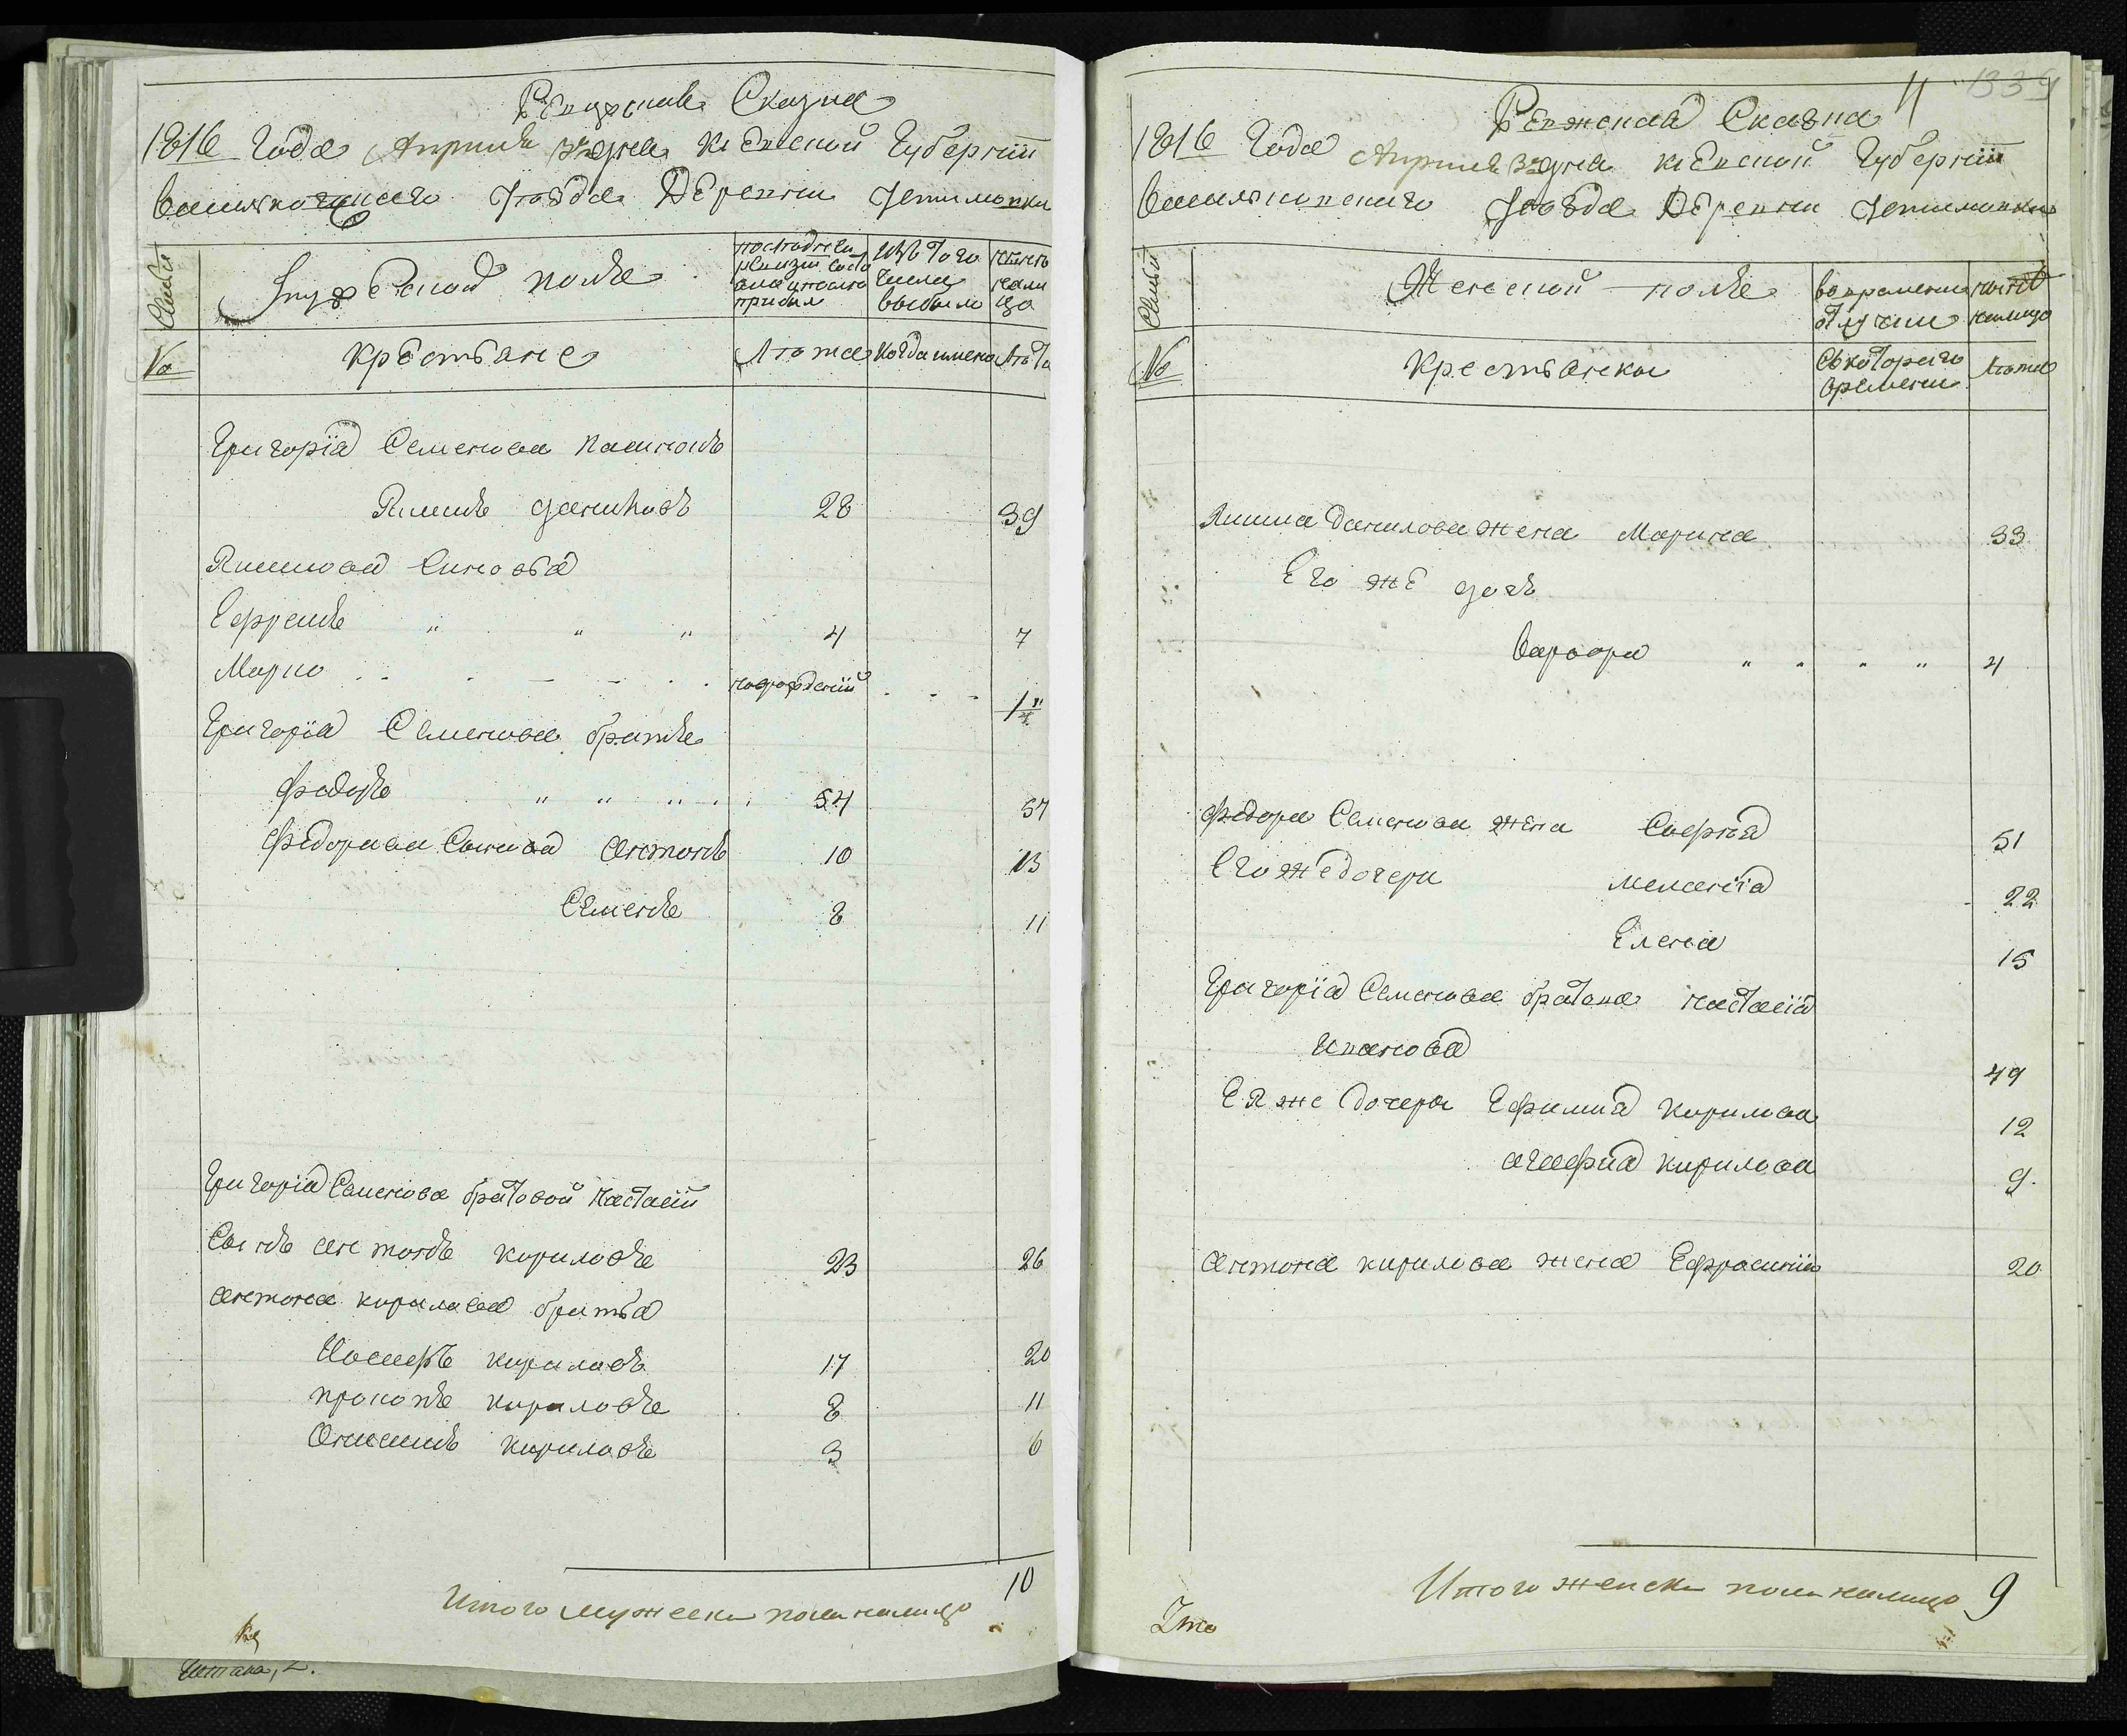 Ревизская Сказка
1816 Года Апреля 3 дня Киевской Губернии
Васильковского Уезда Деревни Устимовки
Семьи
Мужеской полъ
По последней ревизии состояло и после прибыло
Изъ того числа выбыло
Ныне на лицо
№
Крестьяне
Лета
Когда имено
Лета
Григорія Семенова пасинокъ
Якимъ Даниловъ 28 39
Якимова Синовья
Ефремъ " " " 4 7
Марко новорожденій 1¼
Григорія Семенова братъ
Федоръ " " " 54 57
Федорова Синовья Антонъ 10 13
Семенъ 8 11
Григорія Семенова братовой Настасіи
Сынъ Антонъ Кириловъ 23 26
Антона Кирилова братья
Иосифъ Кириловъ 17 20
Прокопъ Кириловъ 8 11
Онисимъ Кириловъ 3 6
Итого мужеска пола налицо 10
Ревизская Сказка
11 1339
1816 Года Апреля 3 дня Киевской Губернии
Васильковского Уезда Деревни Устимовки
Семьи
Женской полъ
Во временной отлучки
Ныне налицо
№
Крестьянки
Съ которого времени
Лета
Якима Данилова жена Марина 33
Его же дочь
Варвара " " " " 4
Федора Семенова жена Софія 51
Его же дочери Меланія 22
Елена 15
Григорія Семенова братова Настасія
Иванова 49
Ея же дочери Ефимія Кирилова 12
Агафія Кирилова 9
Антона Кирилова жена Ефросинія 20
Итого женска пола налицо 9